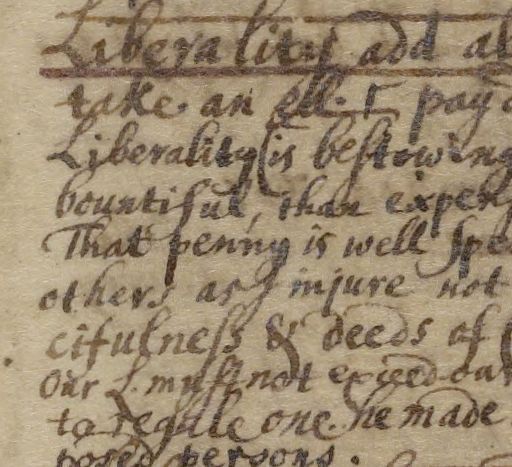 Liberality add al
take an ell. pay
Liberality is bestowing
bountiful, than expen
That penny is well spe
others as injure not
cifulness & deeds of
Our L. must not exceed our
to regale one. he made
posed persons.